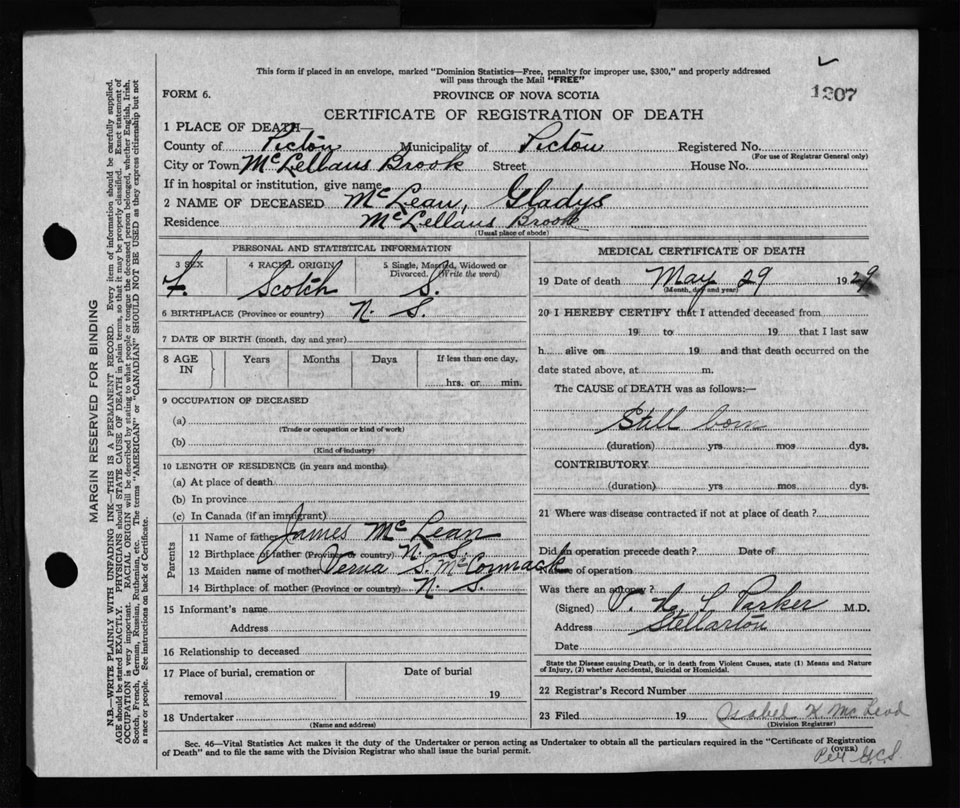 This form if placed in an envelope, marked "Dominion Statistics—Free, penalty for improper use, $300," and properly addressed
will pass through the Mail "FREE"
1307
FORM 6.
PROVINCE OF NOVA SCOTIA
CERTIFICATE OF REGISTRATION OF DEATH
1 PLACE OF DEATH—
County of Pictou Municipality of Pictou Registered No.
(For use of Registrar General only)
City or Town McLellans Brook Street House No.
If in hospital or institution, give name
2 NAME OF DECEASED McLean, Gladys
Residence McLellans Brook
(Usual place of abode)
PERSONAL AND STATISTICAL INFORMATION
3 SEX 4 RACIAL ORIGIN 5 Single, Married, Widowed or
Divorced. (Write the word)
F. Scotch S.
6 BIRTHPLACE (Province or country) N. S.
7 DATE OF BIRTH (month, day and year)
8 AGE Years Months Days If less than one day,
IN hrs. or min.
9 OCCUPATION OF DECEASED
(a)
(Trade or occupation or kind of work)
(b)
(Kind of industry)
10 LENGTH OF RESIDENCE (in years and months)
(a) At place of death
(b) In province
(c) In Canada (if an immigrant)
Parents
11 Name of father James McLean
12 Birthplace of father (Province or country) N. S.
13 Maiden name of mother Verna S. McCormack
14 Birthplace of mother (Province or country) N. S.
15 Informant's name
Address
16 Relationship to deceased
17 Place of burial, cremation or Date of burial
removal 19
18 Undertaker
(Name and address)
MEDICAL CERTIFICATE OF DEATH
19 Date of death May 29 1929
(Month, day and year)
20 I HEREBY CERTIFY that I attended deceased from
19 to 19 that I last saw
h alive on 19 and that death occurred on the
date stated above, at m.
The CAUSE of DEATH was as follows:—
Still born
(duration) yrs mos dys.
CONTRIBUTORY
(duration) yrs mos dys.
21 Where was disease contracted if not at place of death?
Did an operation precede death? Date of
Nature of operation
Was there an autopsy?
(Signed) V. H. T. Parker M.D.
Address Stellarton
Date
State the Disease causing Death, or in death from Violent Causes, state (1) Means and Nature
of Injury, (2) whether Accidental, Suicidal or Homicidal.
22 Registrar's Record Number
23 Filed 19 Isabel K. McLeod
(Division Registrar)
Sec. 46—Vital Statistics Act makes it the duty of the Undertaker or person acting as Undertaker to obtain all the particulars required in the "Certificate of Registration
of Death" and to file the same with the Division Registrar who shall issue the burial permit.
(OVER)
Per G.C.S.
MARGIN RESERVED FOR BINDING
N.B.—WRITE PLAINLY WITH UNFADING INK—THIS IS A PERMANENT RECORD. Every item of information should be carefully supplied.
AGE should be stated EXACTLY. PHYSICIANS should STATE CAUSE OF DEATH in plain terms, so that it may be properly classified. Exact statement of
OCCUPATION is very important. RACIAL ORIGIN will be described by stating to what people or tongue the deceased person belonged, whether English, Irish,
Scotch, French, German, Russian, Ruthenian, etc. The terms "AMERICAN" or "CANADIAN" SHOULD NOT BE USED as they express citizenship but not
a race or people. See instructions on back of Certificate.